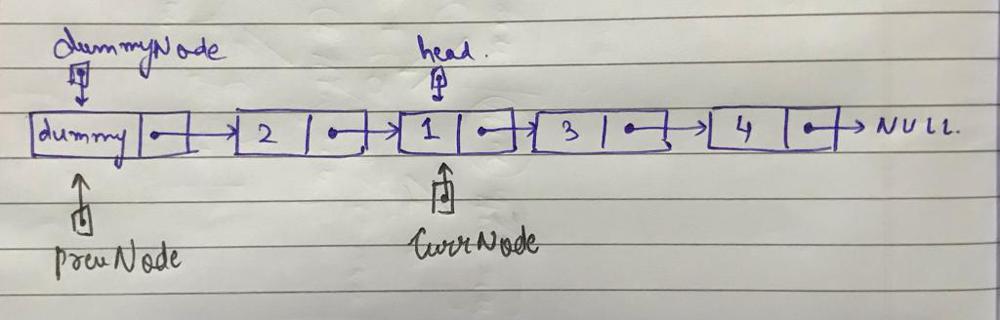 dummyNode head.
dummy 2 1 3 4 NULL.
prevNode CurrNode